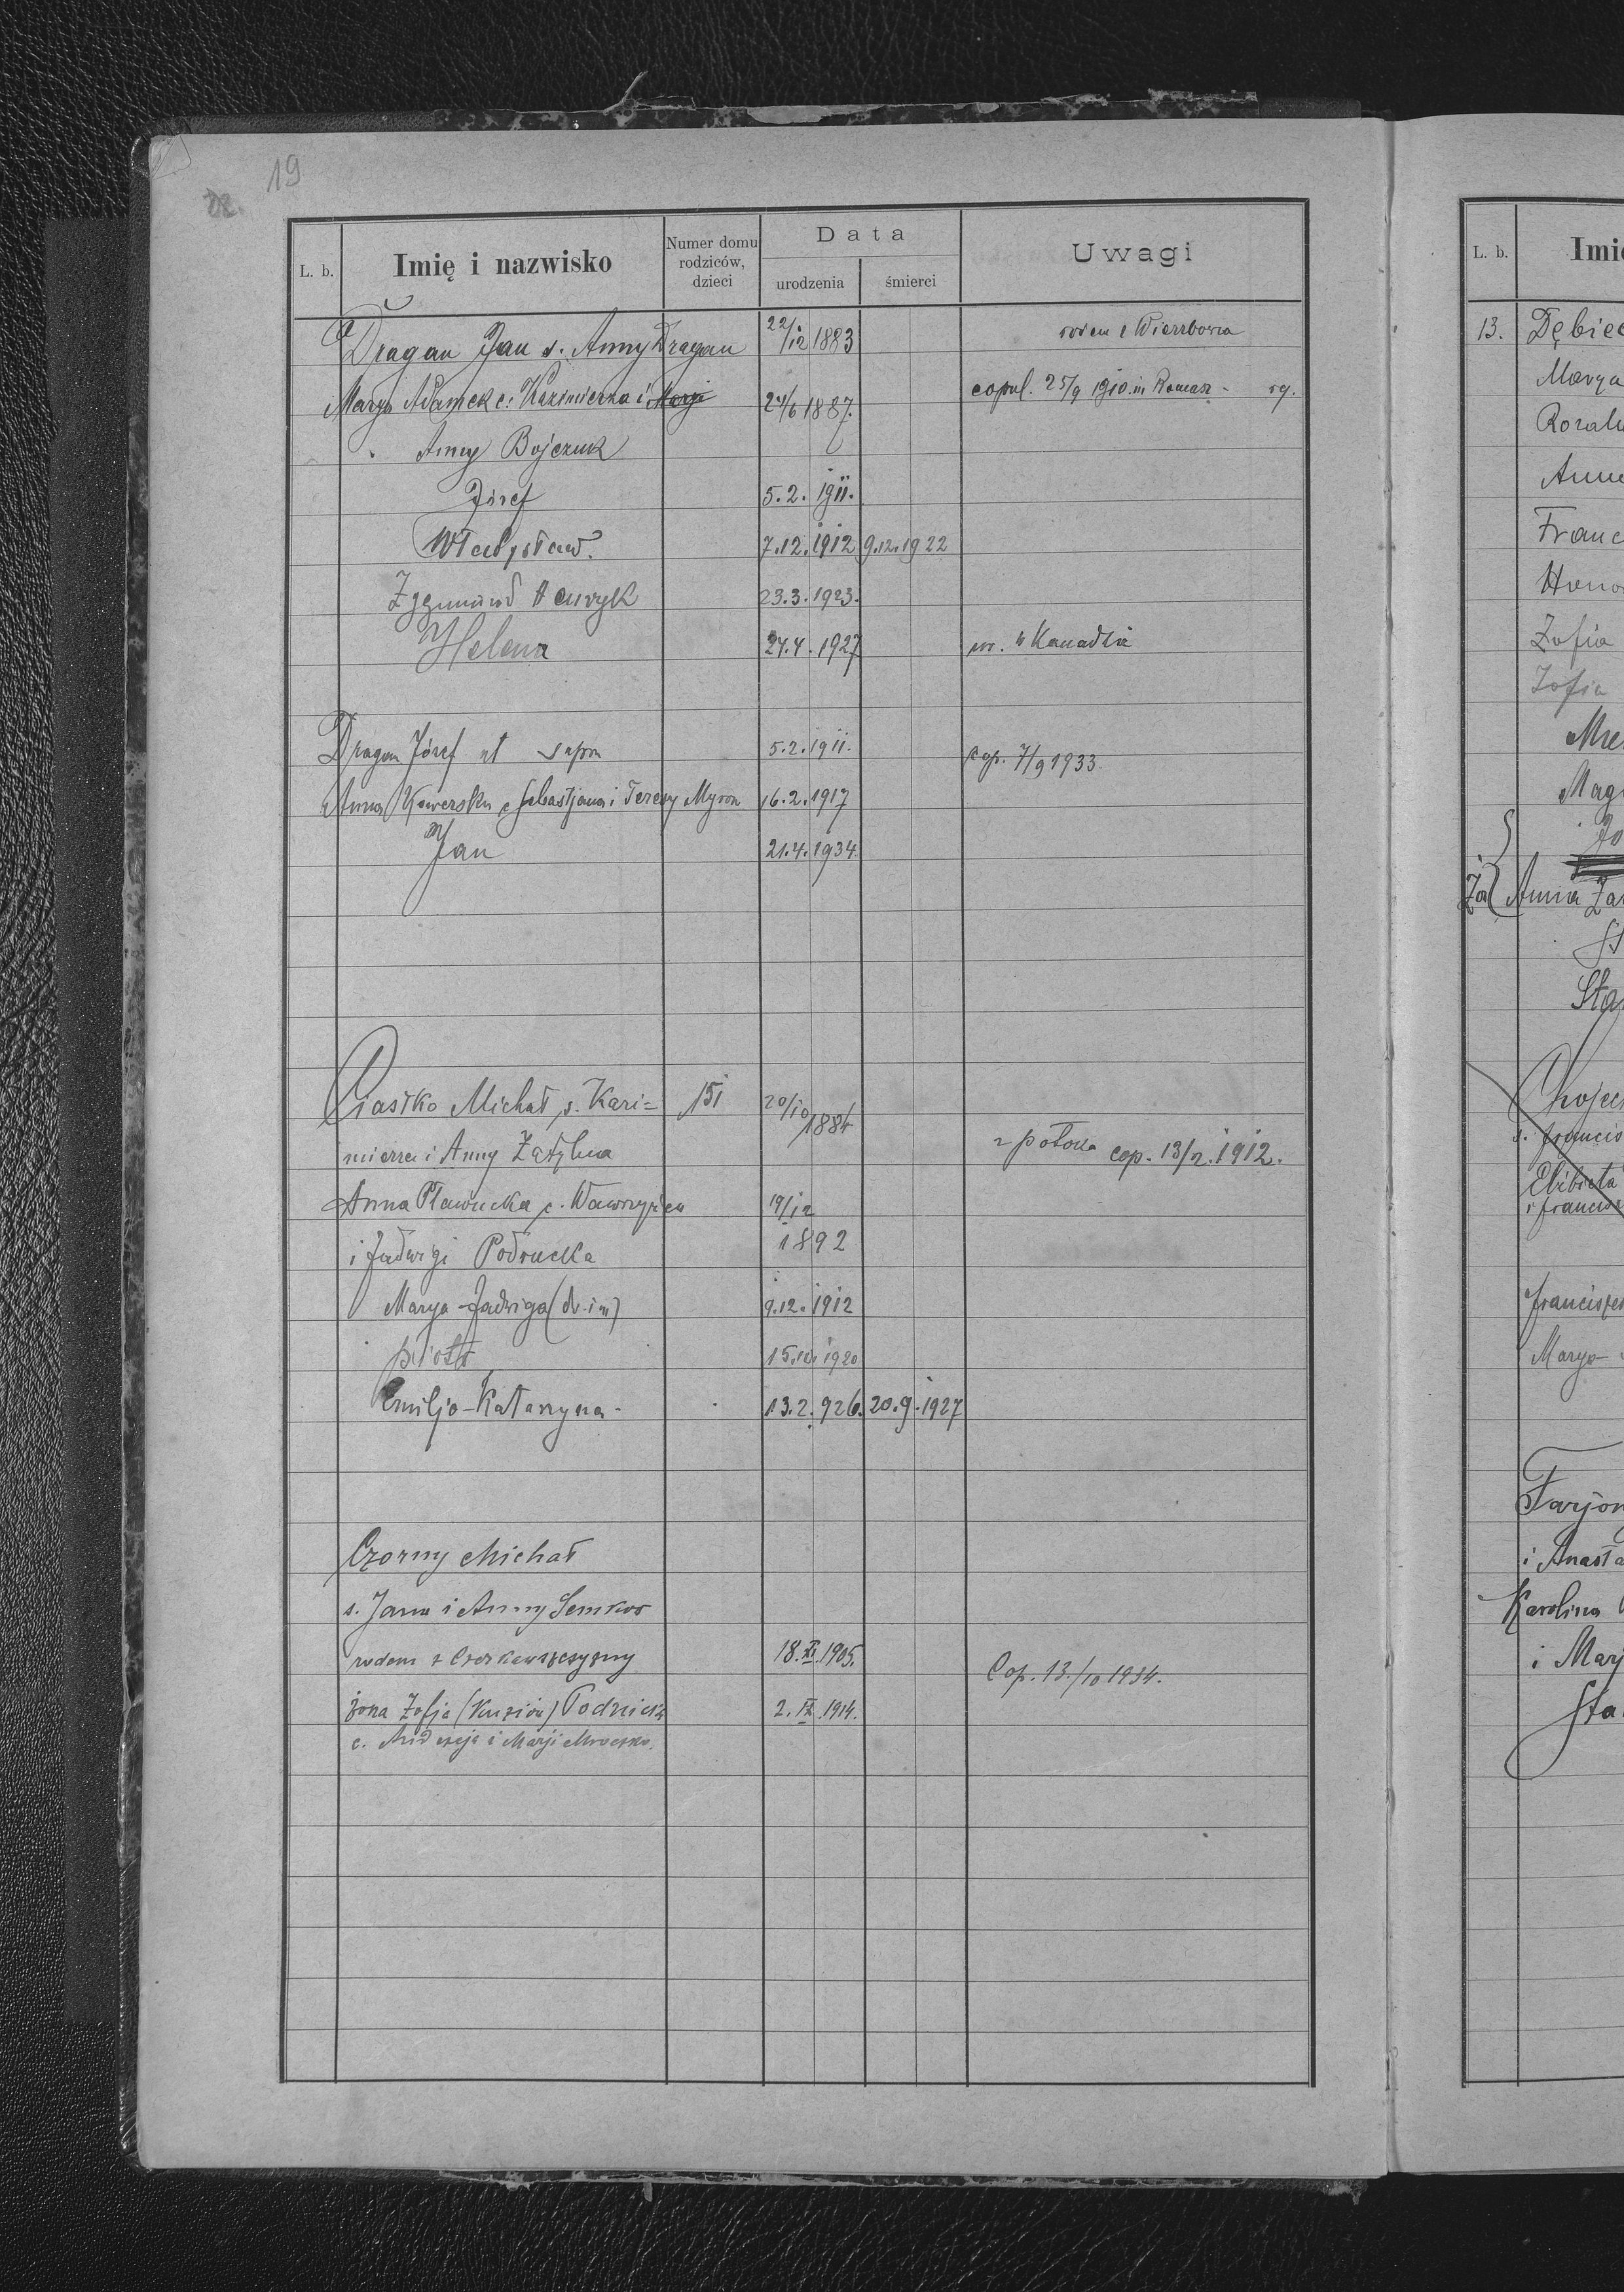 19
L. b. Imię i nazwisko Numer domu rodziców, dzieci Data urodzenia śmierci Uwagi
Dragan Jan s. Anny Dragan 22/12 1883 rodem z Wierzbowca
Marya Adamek c. Kazimierza i Marji 24/6 1887. copul. 25/9 1910. in
Anny Bojczuk
Józef 5.2. 1911.
Władysław. 7.12.1912 9.12.1922
Zygmund Henryk 23.3.1923.
Helena 24.4.1927 ur. w Kanadzie
Dragan Józef ut supra 5.2.1911. Cop. 7/9 1933.
Anna Kowerska c Sebastjana i Teresy Myron 16.2.1917
Jan 21.4.1934
Ciastko Michał s. Kazi= 151 20/10 1884
mierza i Anny Zatylna z Potoka cop. 13/2.1912.
Anna Pławucka c. Wawrzyńca 19/12
i Jadwigi Podrucka 1892
Marya-Jadwiga (dw. im) 9.12.1912
Piotr 1920
Emilja-Katarzyna- 13.2.926. 20.9.1927
Czorny Michał
s. Jana i Anny Semkow
rodem z 18.XI.1905. Cop. 13./10 1934.
żona Zofja 2.IX.1914.
c. Andrzeja i Marji
L. b. Imię
13. Dębiec
Marya
Rozalia
Anna
Franc
Hono
Zofia
Zofia
Mie
Mag
Jo
Za Anna Zar
St
Sta
Chojec
s. Francis
Elżbieta
i Francis
Franciszek
Marya
Farjon
i Anasta
Karolina
i Mary
Sta